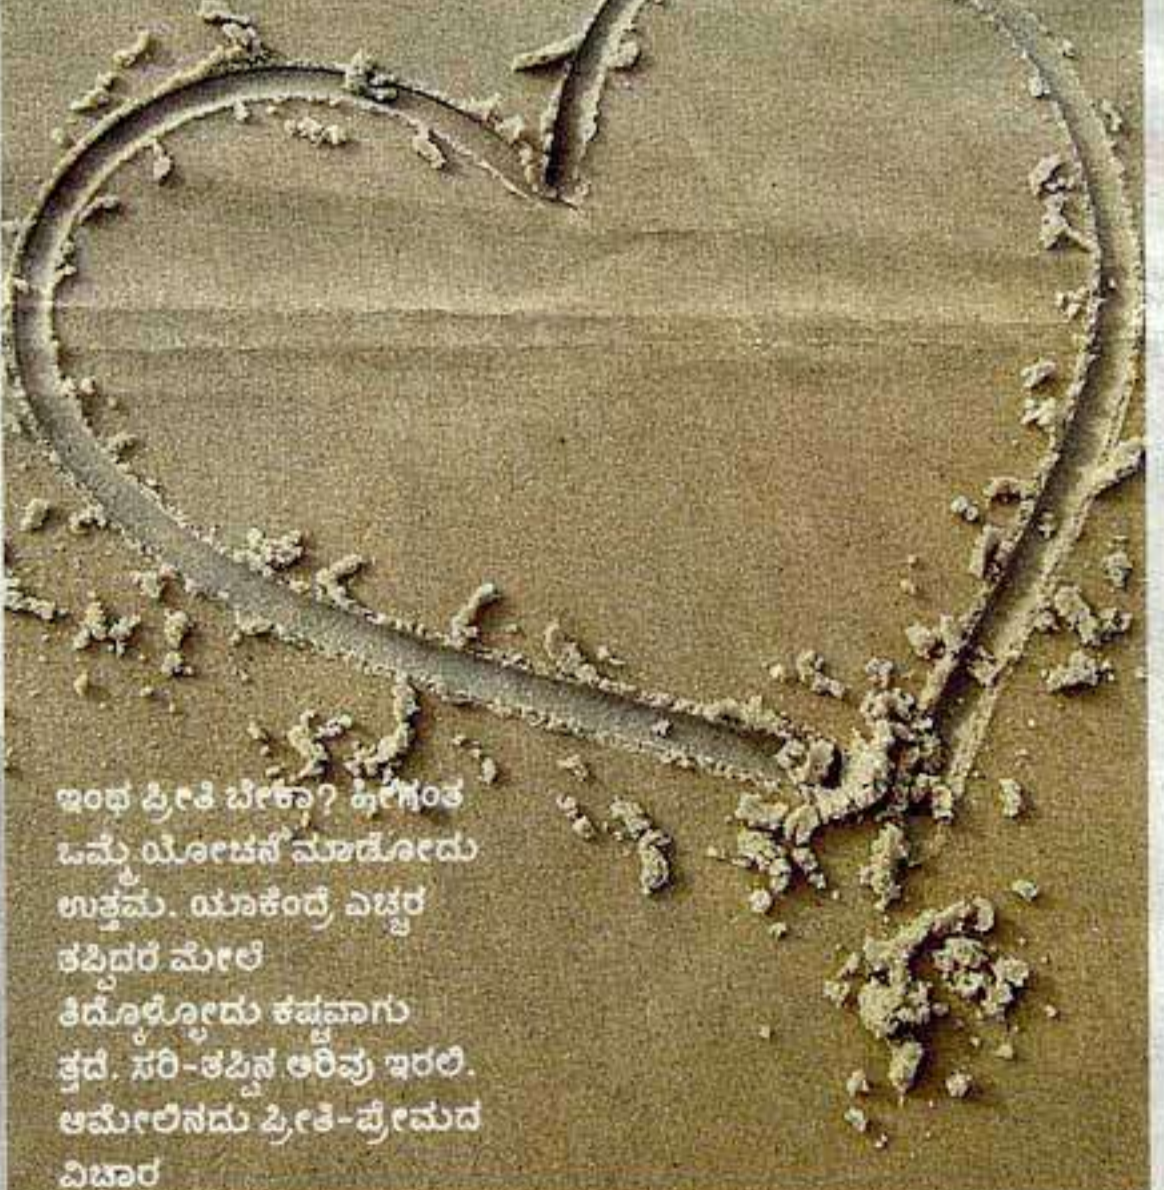 ಇಂಥ ಪ್ರೀತಿ ಬೇಕಾ? ಹೀಗಂತ
ಒಮ್ಮೆ ಯೋಚನೆ ಮಾಡೋದು
ಉತ್ತಮ. ಯಾಕೆಂದ್ರೆ ಎಚ್ಚರ
ತಪ್ಪಿದರೆ ಮೇಲೆ
ತಿದ್ಕೊಳ್ಳೋದು ಕಷ್ಟವಾಗು
ತ್ತದೆ. ಸರಿ-ತಪ್ಪಿನ ಅರಿವು ಇರಲಿ.
ಆಮೇಲಿನದು ಪ್ರೀತಿ-ಪ್ರೇಮದ
ವಿಚಾರ